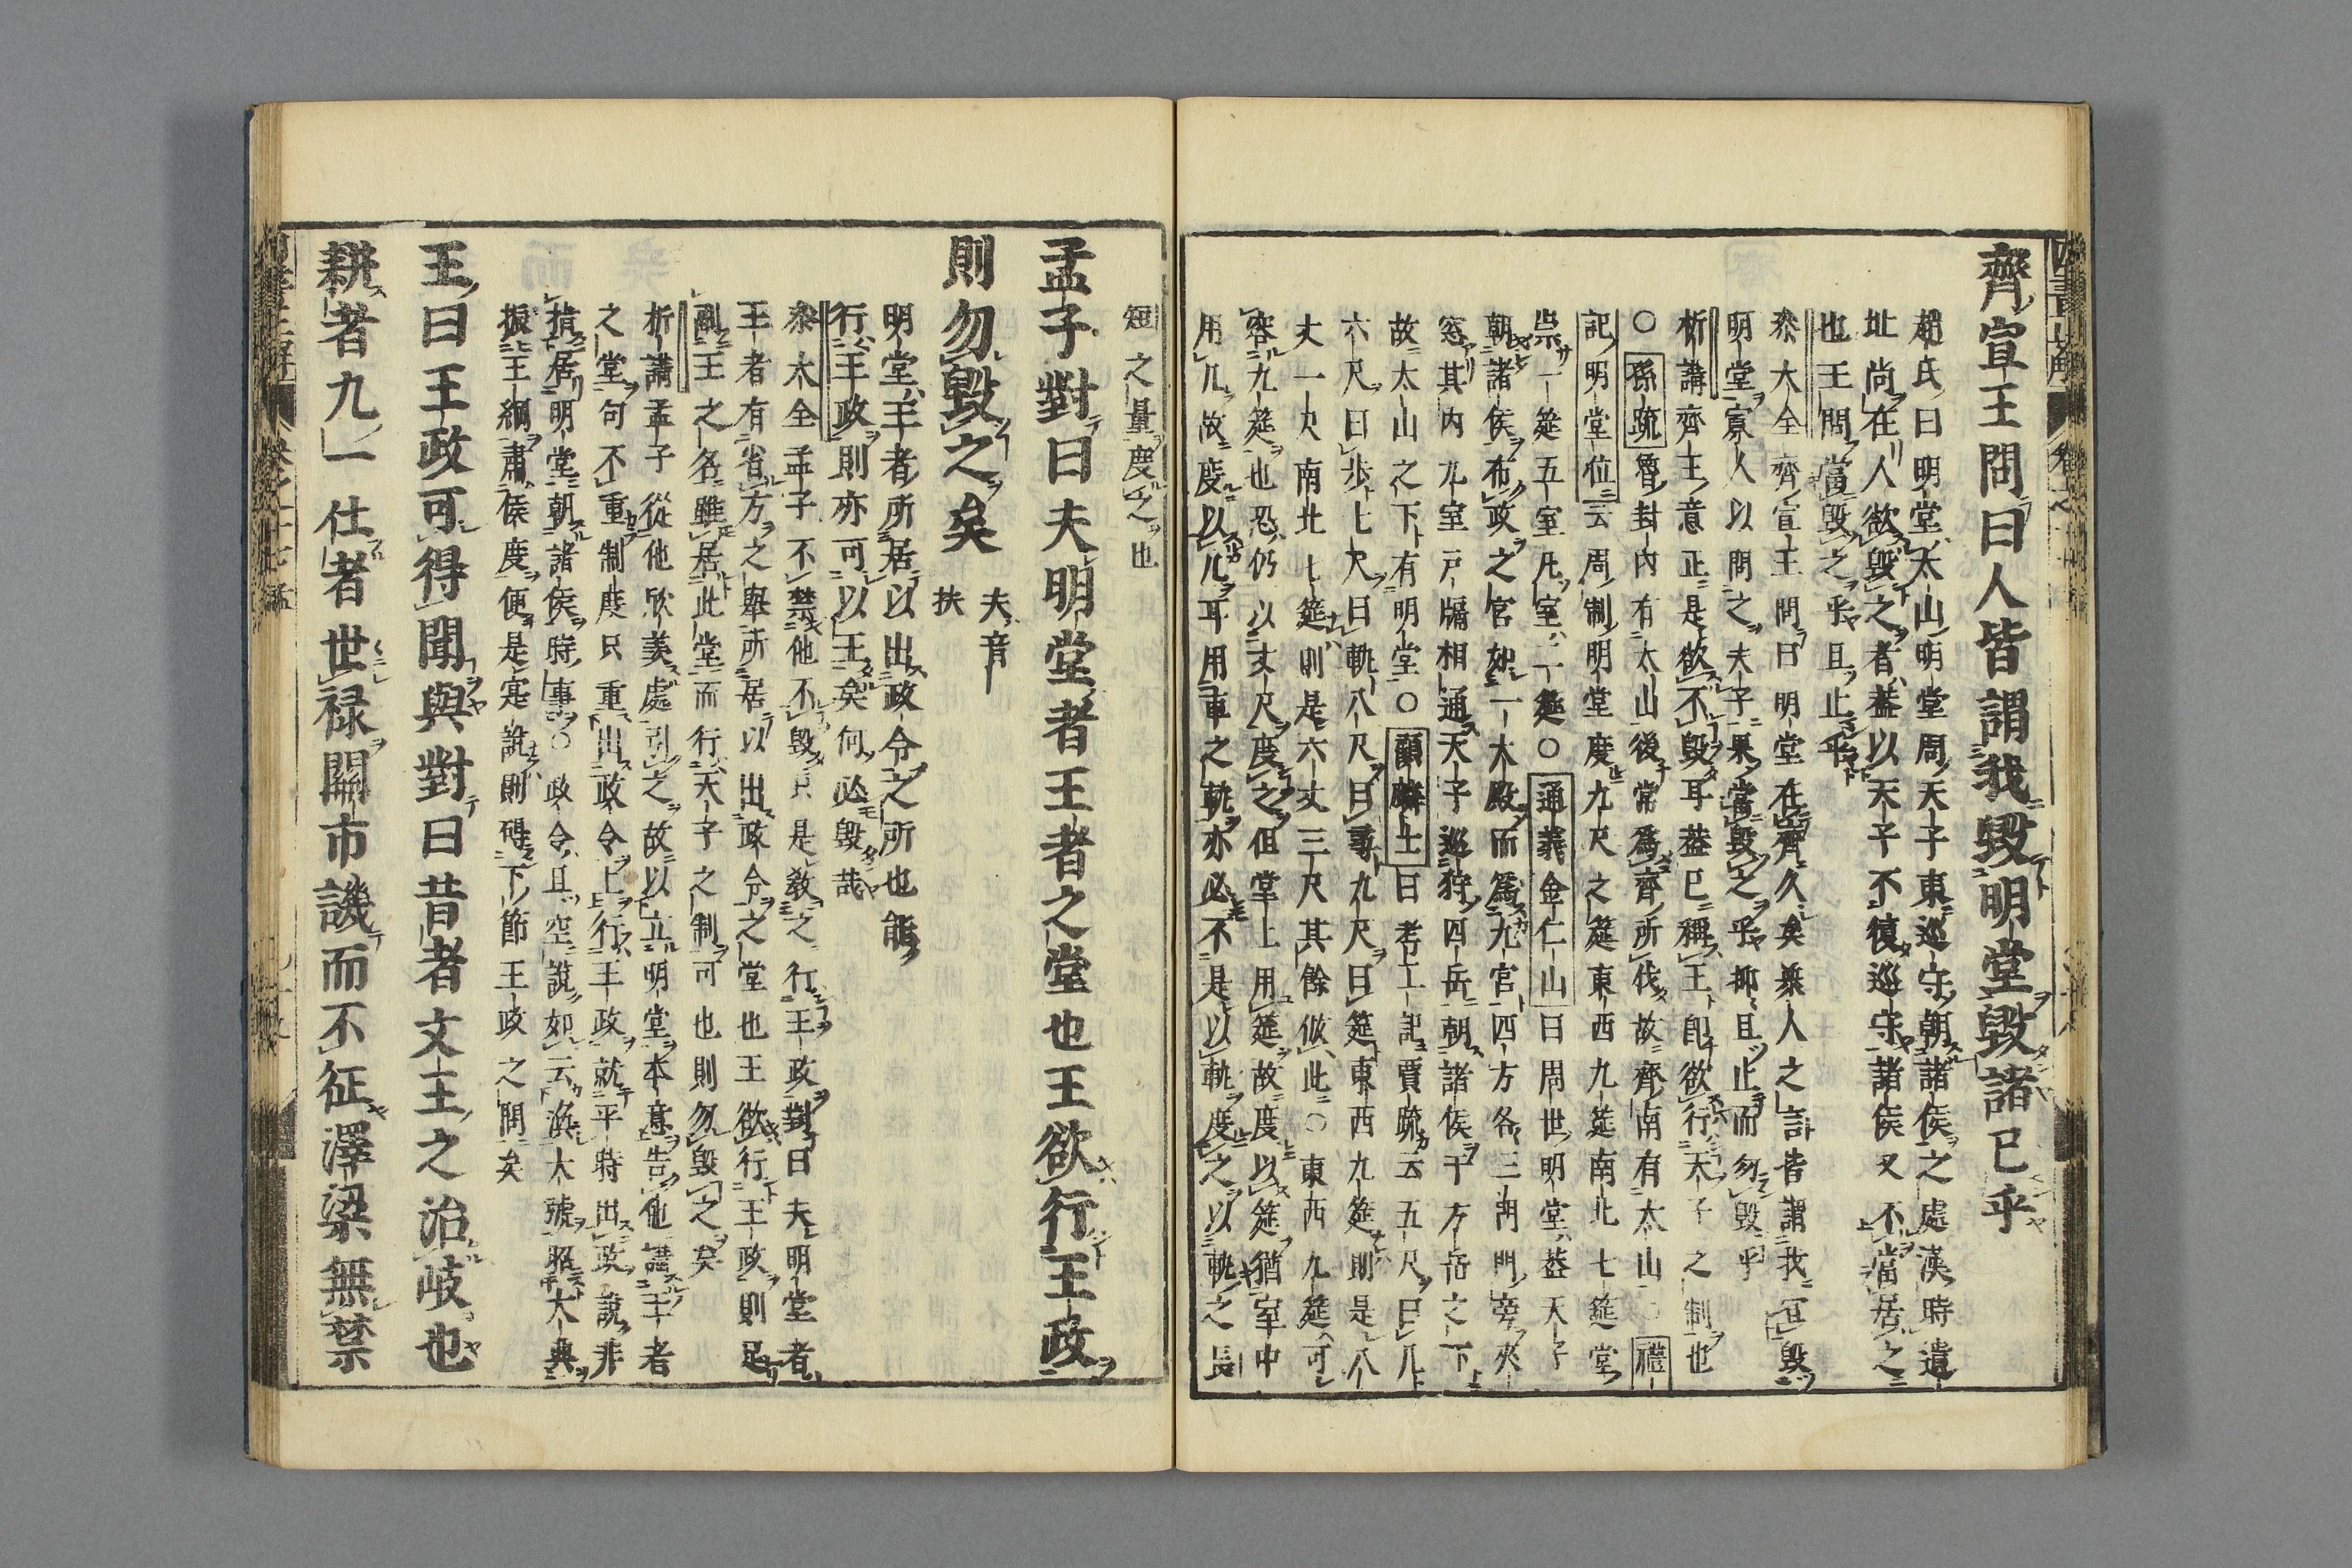 齊宣王問曰人皆謂我毀明堂毀諸已乎
趙氏曰明堂太山明堂周天子東巡守朝諸侯之處漢時遺
址尚在人欲毀之者蓋以天子不復巡守諸侯又不當居之
也王問當毀之乎且止乎
泰大全齊宣王問曰明堂在齊久矣衆人之言皆謂我宜毀
明堂寡人以問之夫子果當毀之乎抑且止而勿毀乎
析講齊王意正是欲不毀耳蓋已稱王卽欲行天子之制也
○孫疏魯封內有太山後常爲齊所伐故齊南有太山○禮
記明堂位云周制明堂度九尺之筵東西九筵南北七筵堂
崇一筵五室凡室二筵○通義金仁山曰周世明堂蓋天子
朝諸侯布政之宮如一大殿而爲九宮四方各三門門旁夾
窓其內九室戸牖相通天子巡狩四岳朝諸侯于方岳之下
故太山之下有明堂○顧麟士曰考工記賈疏云五尺曰几
六尺曰步七尺曰軌八尺曰尋九尺曰筵東西九筵則是八
丈一尺南北七筵則是六丈三尺其餘倣此○東西九筵可
容九筵也恐仍以丈尺度之但堂上用筵故度以筵猶室中
用几故度以几耳用車之軌亦必不是以軌度之以軌之長
短之量度之也
孟子對曰夫明堂者王者之堂也王欲行王政
則勿毀之矣夫音扶
明堂王者所居以出政令之所也能
行王政則亦可以王矣何必毀哉
泰大全孟子不禁他不毀只是敎之行王政對曰夫明堂者
王者有省方之舉所居以出政令之堂也王欲行王政則足
亂王之名雖居此堂而行天子之制可也則勿毀之矣
析講孟子從他欣羨處引之故以立明堂本意告他講王者
之堂句不重制度只重出政令上行王政就平時出政說非
指居明堂朝諸侯時事○政令且空說如云渙大號昭大典
振王綱肅侯度便是寔說則碍下節王政之問矣
王曰王政可得聞與對曰昔者文王之治岐也
耕者九一仕者世祿關市譏而不征澤梁無禁